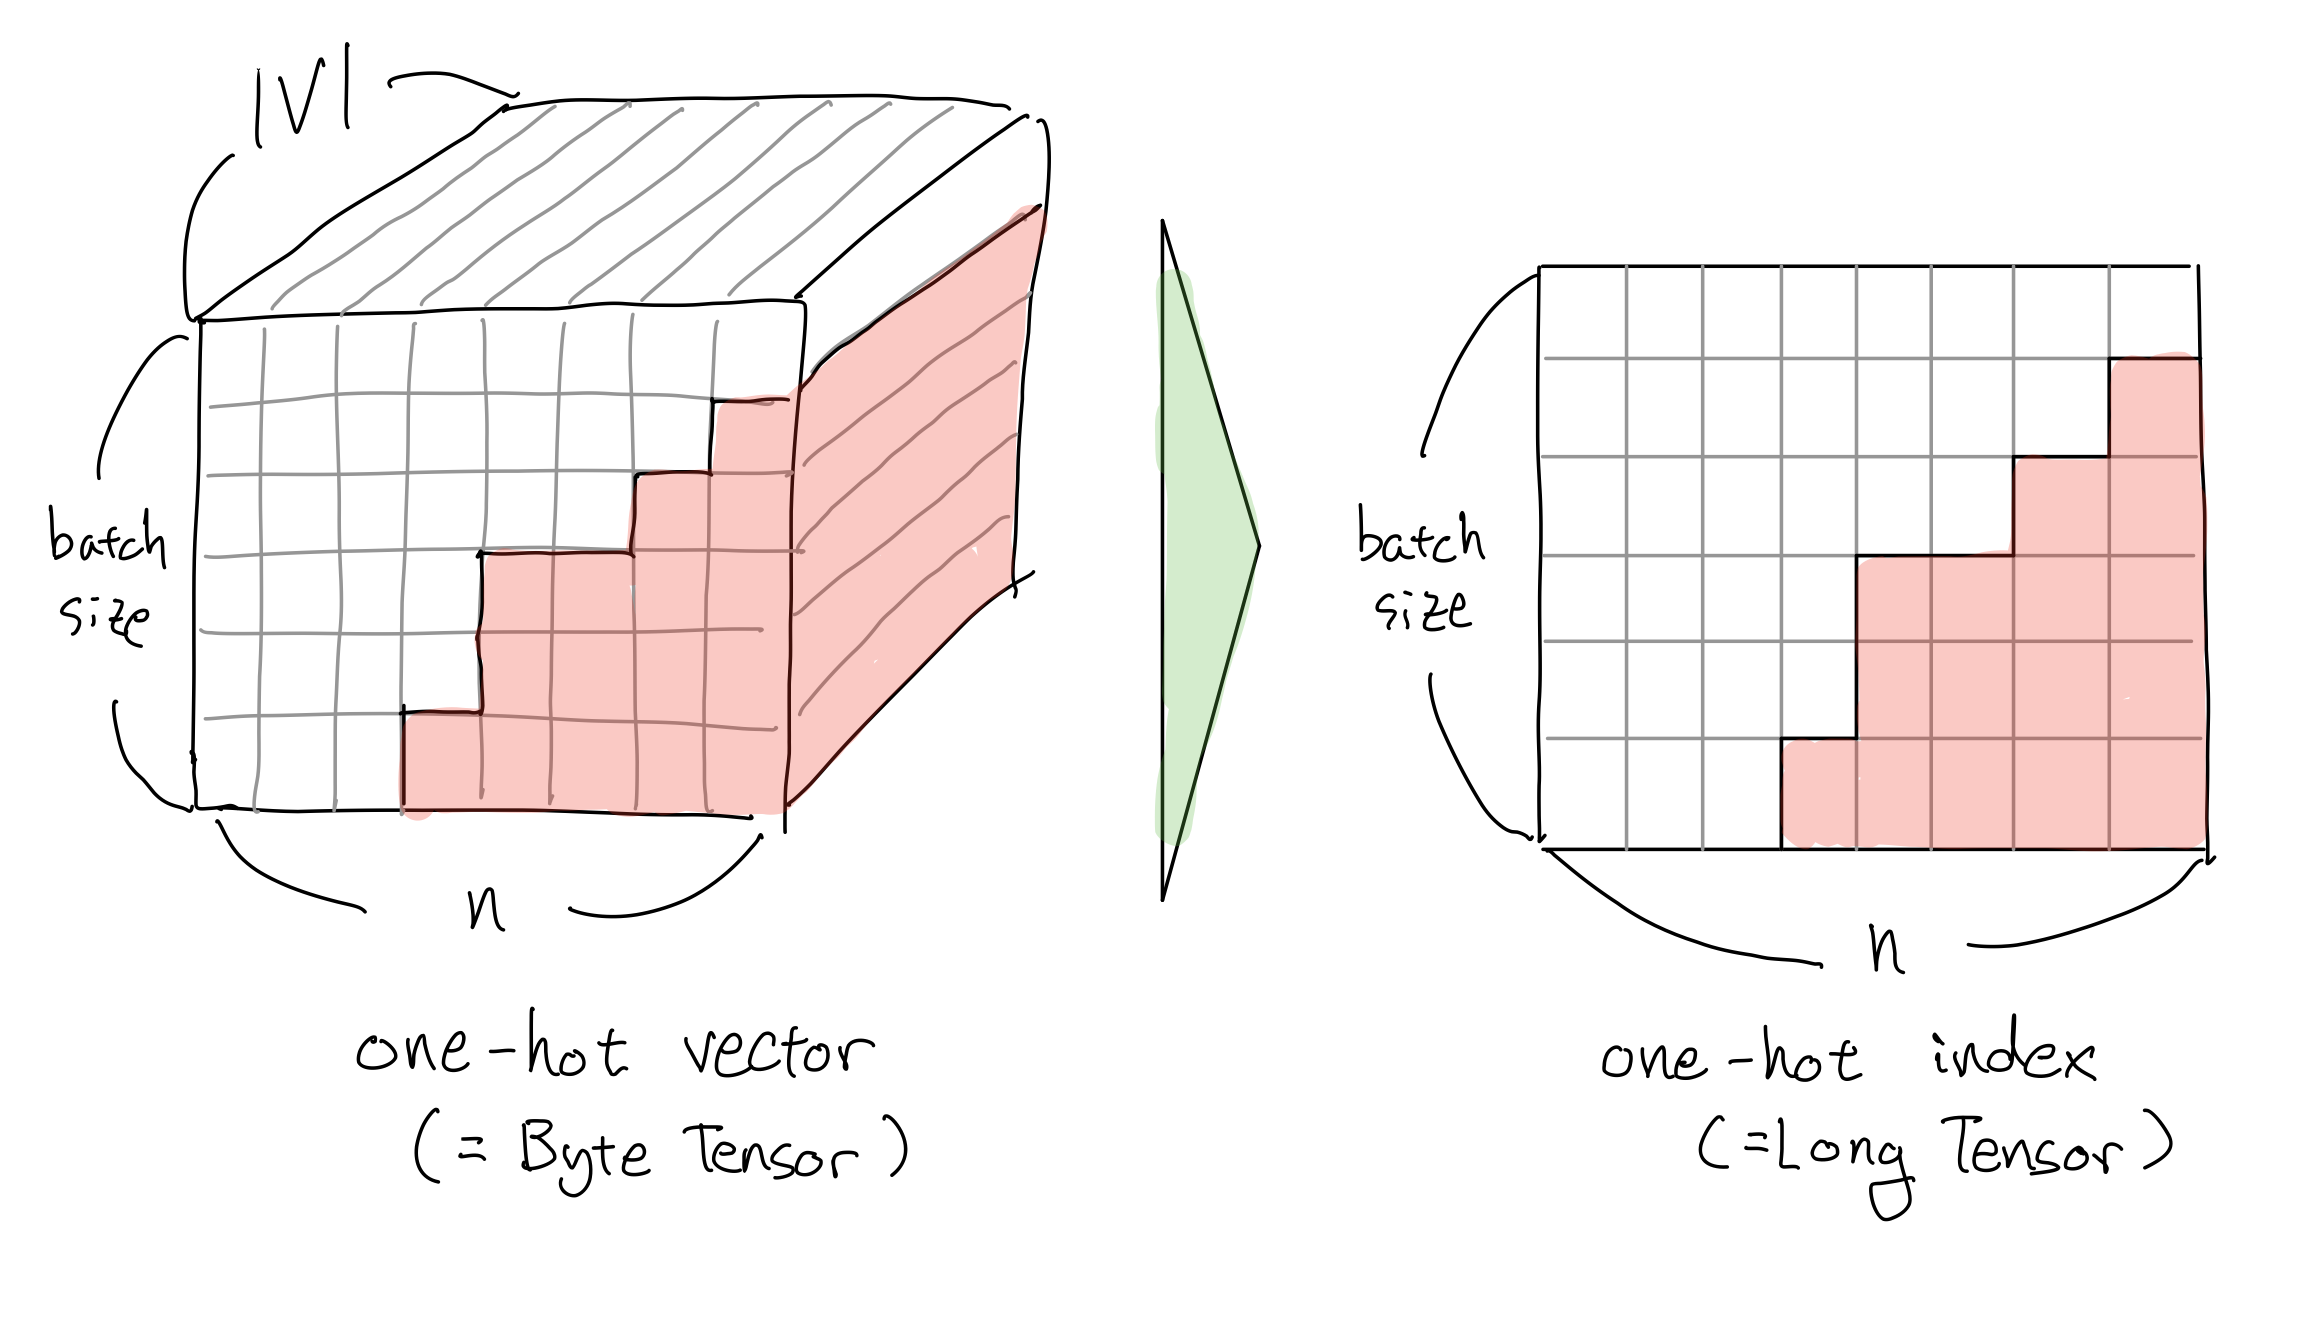 |V|
batch
size
n
one-hot vector
(= Byte Tensor)
batch
size
n
one-hot index
(=Long Tensor)